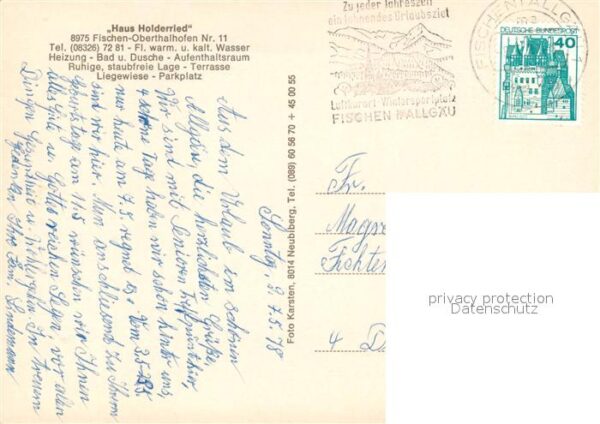 „Haus Holderried"
8975 Fischen-Oberthalhofen Nr. 11
Tel. (08326) 72 81 - Fl. warm. u. kalt. Wasser
Heizung - Bad u. Dusche - Aufenthaltsraum
Ruhige, staubfreie Lage - Terrasse
Liegewiese - Parkplatz
Sonntag, d. 7.5.78
Aus dem Urlaub im schönen
Allgäu, die herzlichsten Grüße.
Wir sind mit Senioren
4 schöne Tage haben wir schon hinter uns,
nur heute am 7.5. regnet es. Vom 3.5-
sind wir hier. Nun anschliessend zu Ihrem
Geburtstag am 11.5 wünschen wir Ihnen
alles Gute u. Gottes reichen Segen vor allen
Dingen Gesundheit u. Wohlergehen. In treuem
Gedenken Ihre Fam. Lindemann
Foto Karsten, 8014 Neubiberg, Tel. (089) 60 56 70 + 45 00 55
Zu jeder Jahreszeit
ein lohnendes Urlaubsziel
Luftkurort · Wintersportplatz
FISCHEN ALLGÄU
FISCHEN I ALLGÄU
DEUTSCHE BUNDESPOST
40
Fr.
Magr
Fichten
4 D
privacy protection
Datenschutz